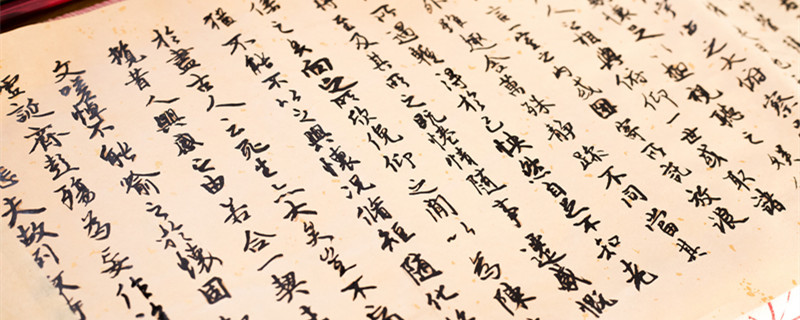 之大俯察
視聽之娛
人之相與俯仰一世或取諸
言一室之內或因寄所託放浪
外雖趣舍萬殊靜躁不同當其
所遇暫得於己快然自足不知老
將至及其所之既惓情隨事遷感慨
係之矣向之所欣俛仰之閒以為陳
猶不能不以之興懷況脩短隨化終
於盡古人云死生亦大矣豈不痛
攬昔人興感之由若合一契未
文嗟悼不能喻之於懷固
虛誕齊彭殤為妄作後
悲夫故列